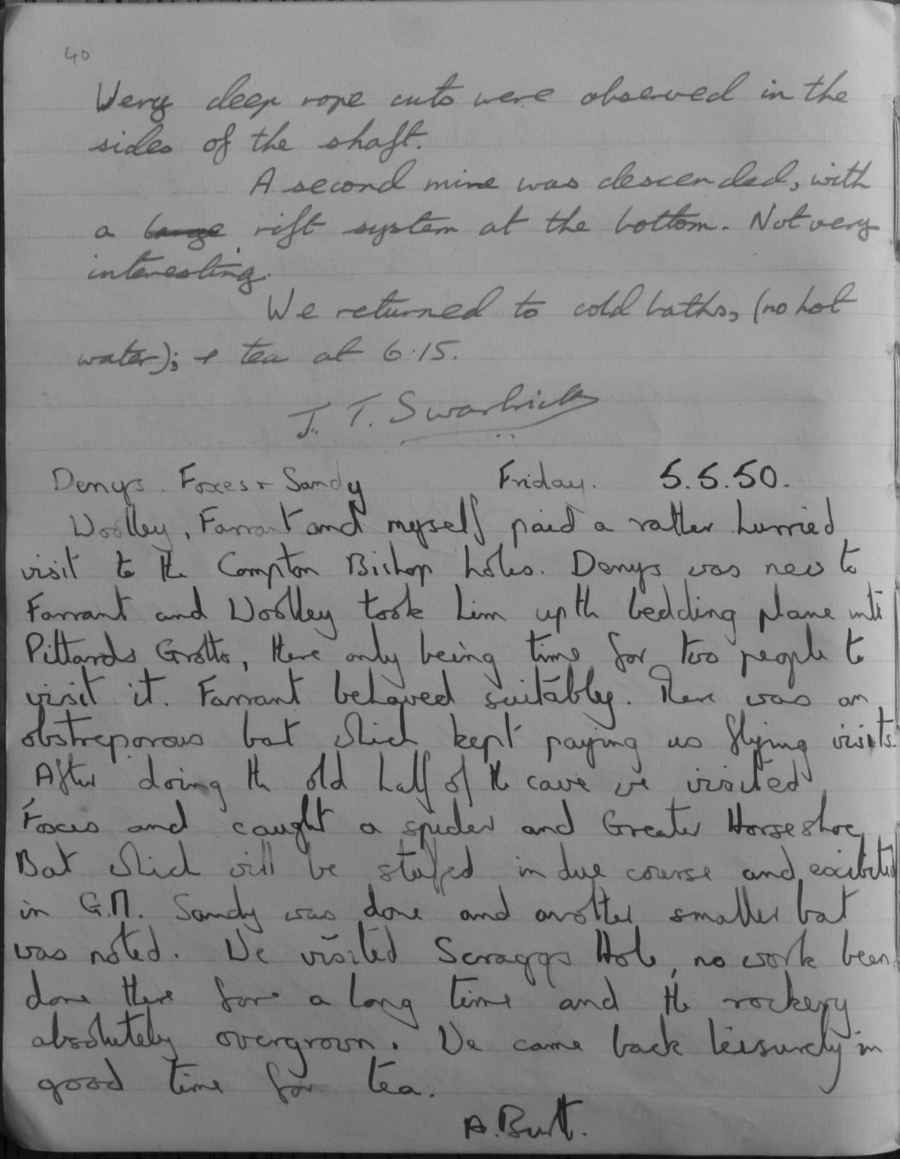 40
Very deep rope cuts were observed in the
sides of the shaft.
A second mine was descended, with
a large rift system at the bottom. Not very
interesting.
We returned to cold baths, (no hot
water); + tea at 6.15.
J. T. Swarbrick
Denys. Foxes + Sandy Friday. 5.5.50.
Woolley, Farrant and myself paid a rather hurried
visit to the Compton Bishop holes. Denys was new to
Farrant and Woolley took him up th bedding plane into
Pittards Grotto, there only being time for two people to
visit it. Farrant behaved suitably. There was an
obstreporous bat which kept paying us flying visits.
After doing the old half of the cave we visited
Foxes and caught a spider and Greater Horseshoe
Bat which will be stuffed in due course and exibited
in G.M. Sandy was done and another smaller bat
was noted. We visited Scraggs Hole, no work been
done there for a long time and the rockery
absolutely overgrown. We came back leisurely in
good time for tea.
A. Burt.